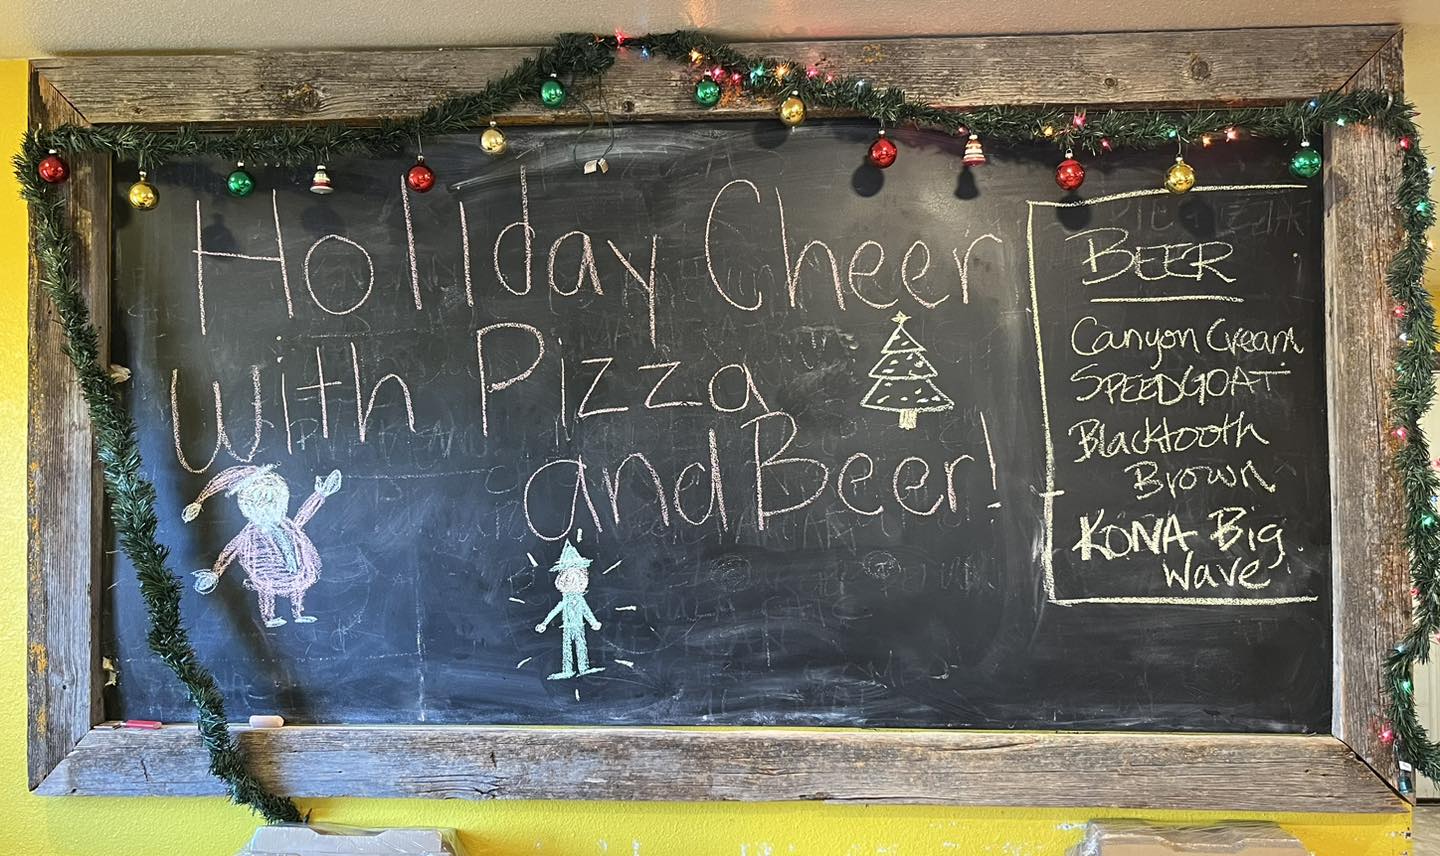 Holiday Cheer
with Pizza
and Beer!
BEER
Canyon Cream
SPEEDGOAT
Blacktooth
Brown
KONA Big
Wave